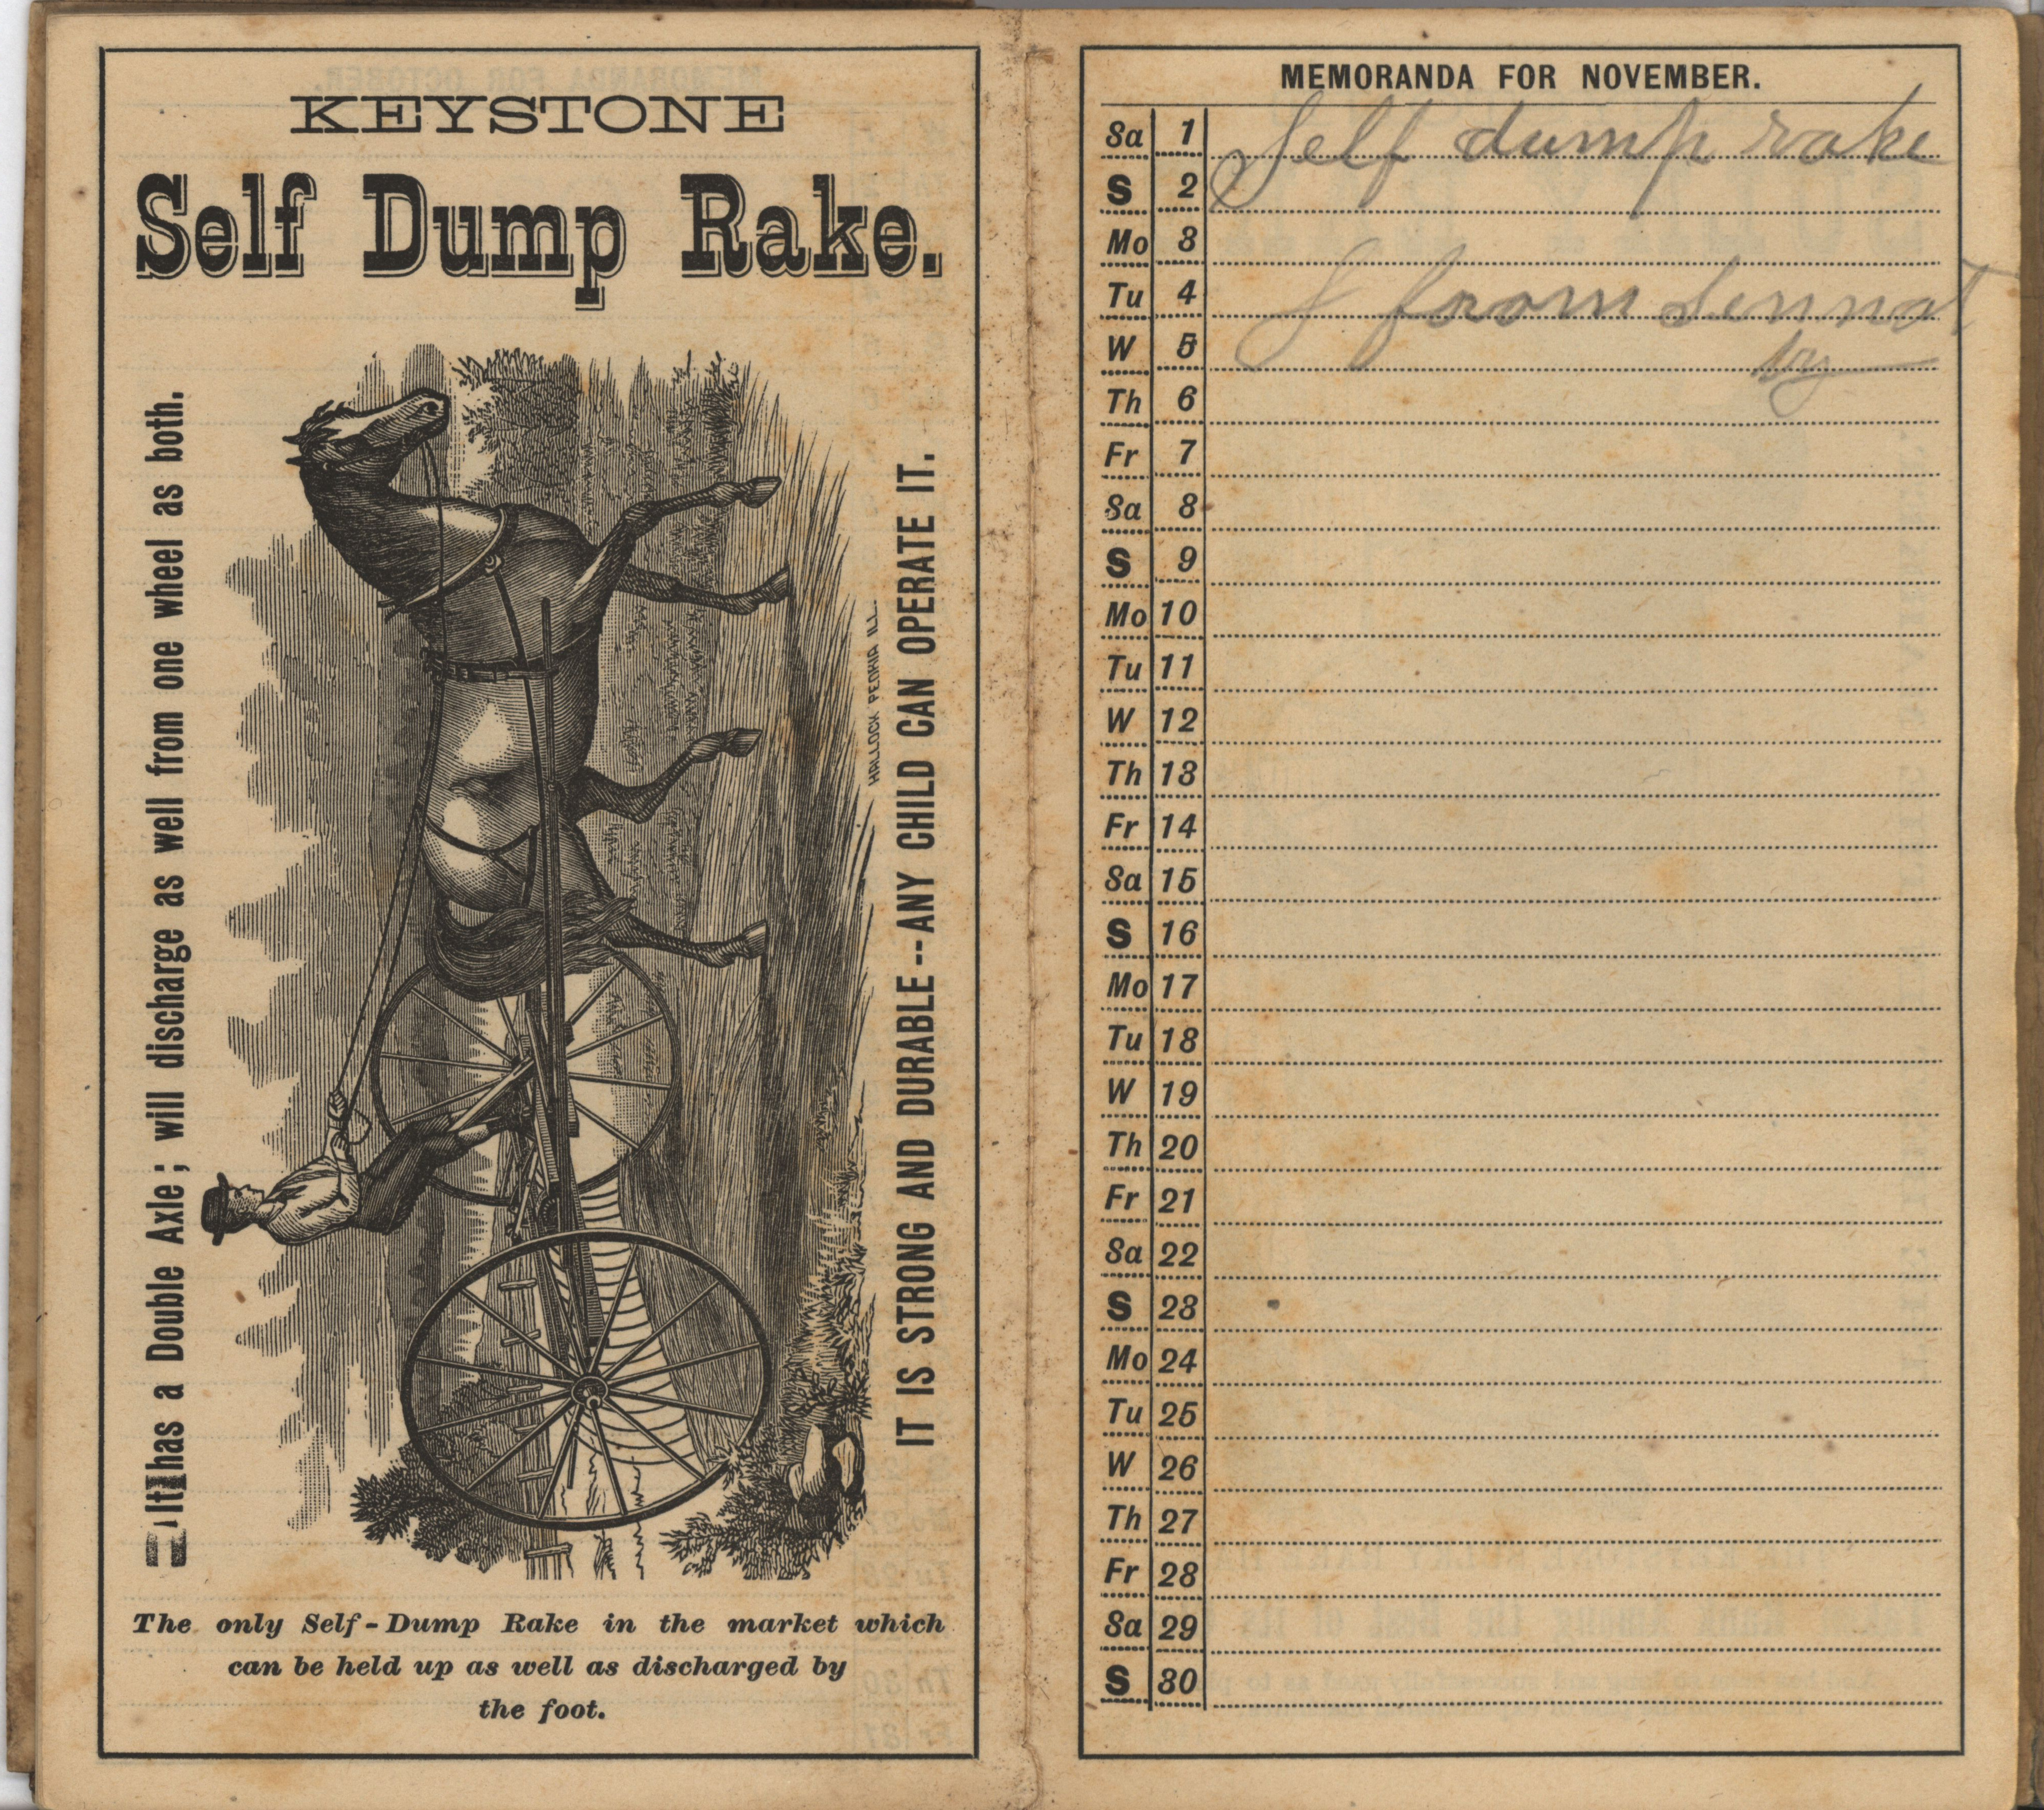 KEYSTONE
Self Dump Rake.
It has a Double Axle; will discharge as well from one wheel as both.
HALLOCK PEORIA ILL.
IT IS STRONG AND DURABLE--ANY CHILD CAN OPERATE IT.
The only Self-Dump Rake in the market which
can be held up as well as discharged by
the foot.
MEMORANDA FOR NOVEMBER.
Sa 1 Self dump rake
S 2
Mo 3
Tu 4 from
W 5 by
Th 6
Fr 7
Sa 8
S 9
Mo 10
Tu 11
W 12
Th 13
Fr 14
Sa 15
S 16
Mo 17
Tu 18
W 19
Th 20
Fr 21
Sa 22
S 23
Mo 24
Tu 25
W 26
Th 27
Fr 28
Sa 29
S 30